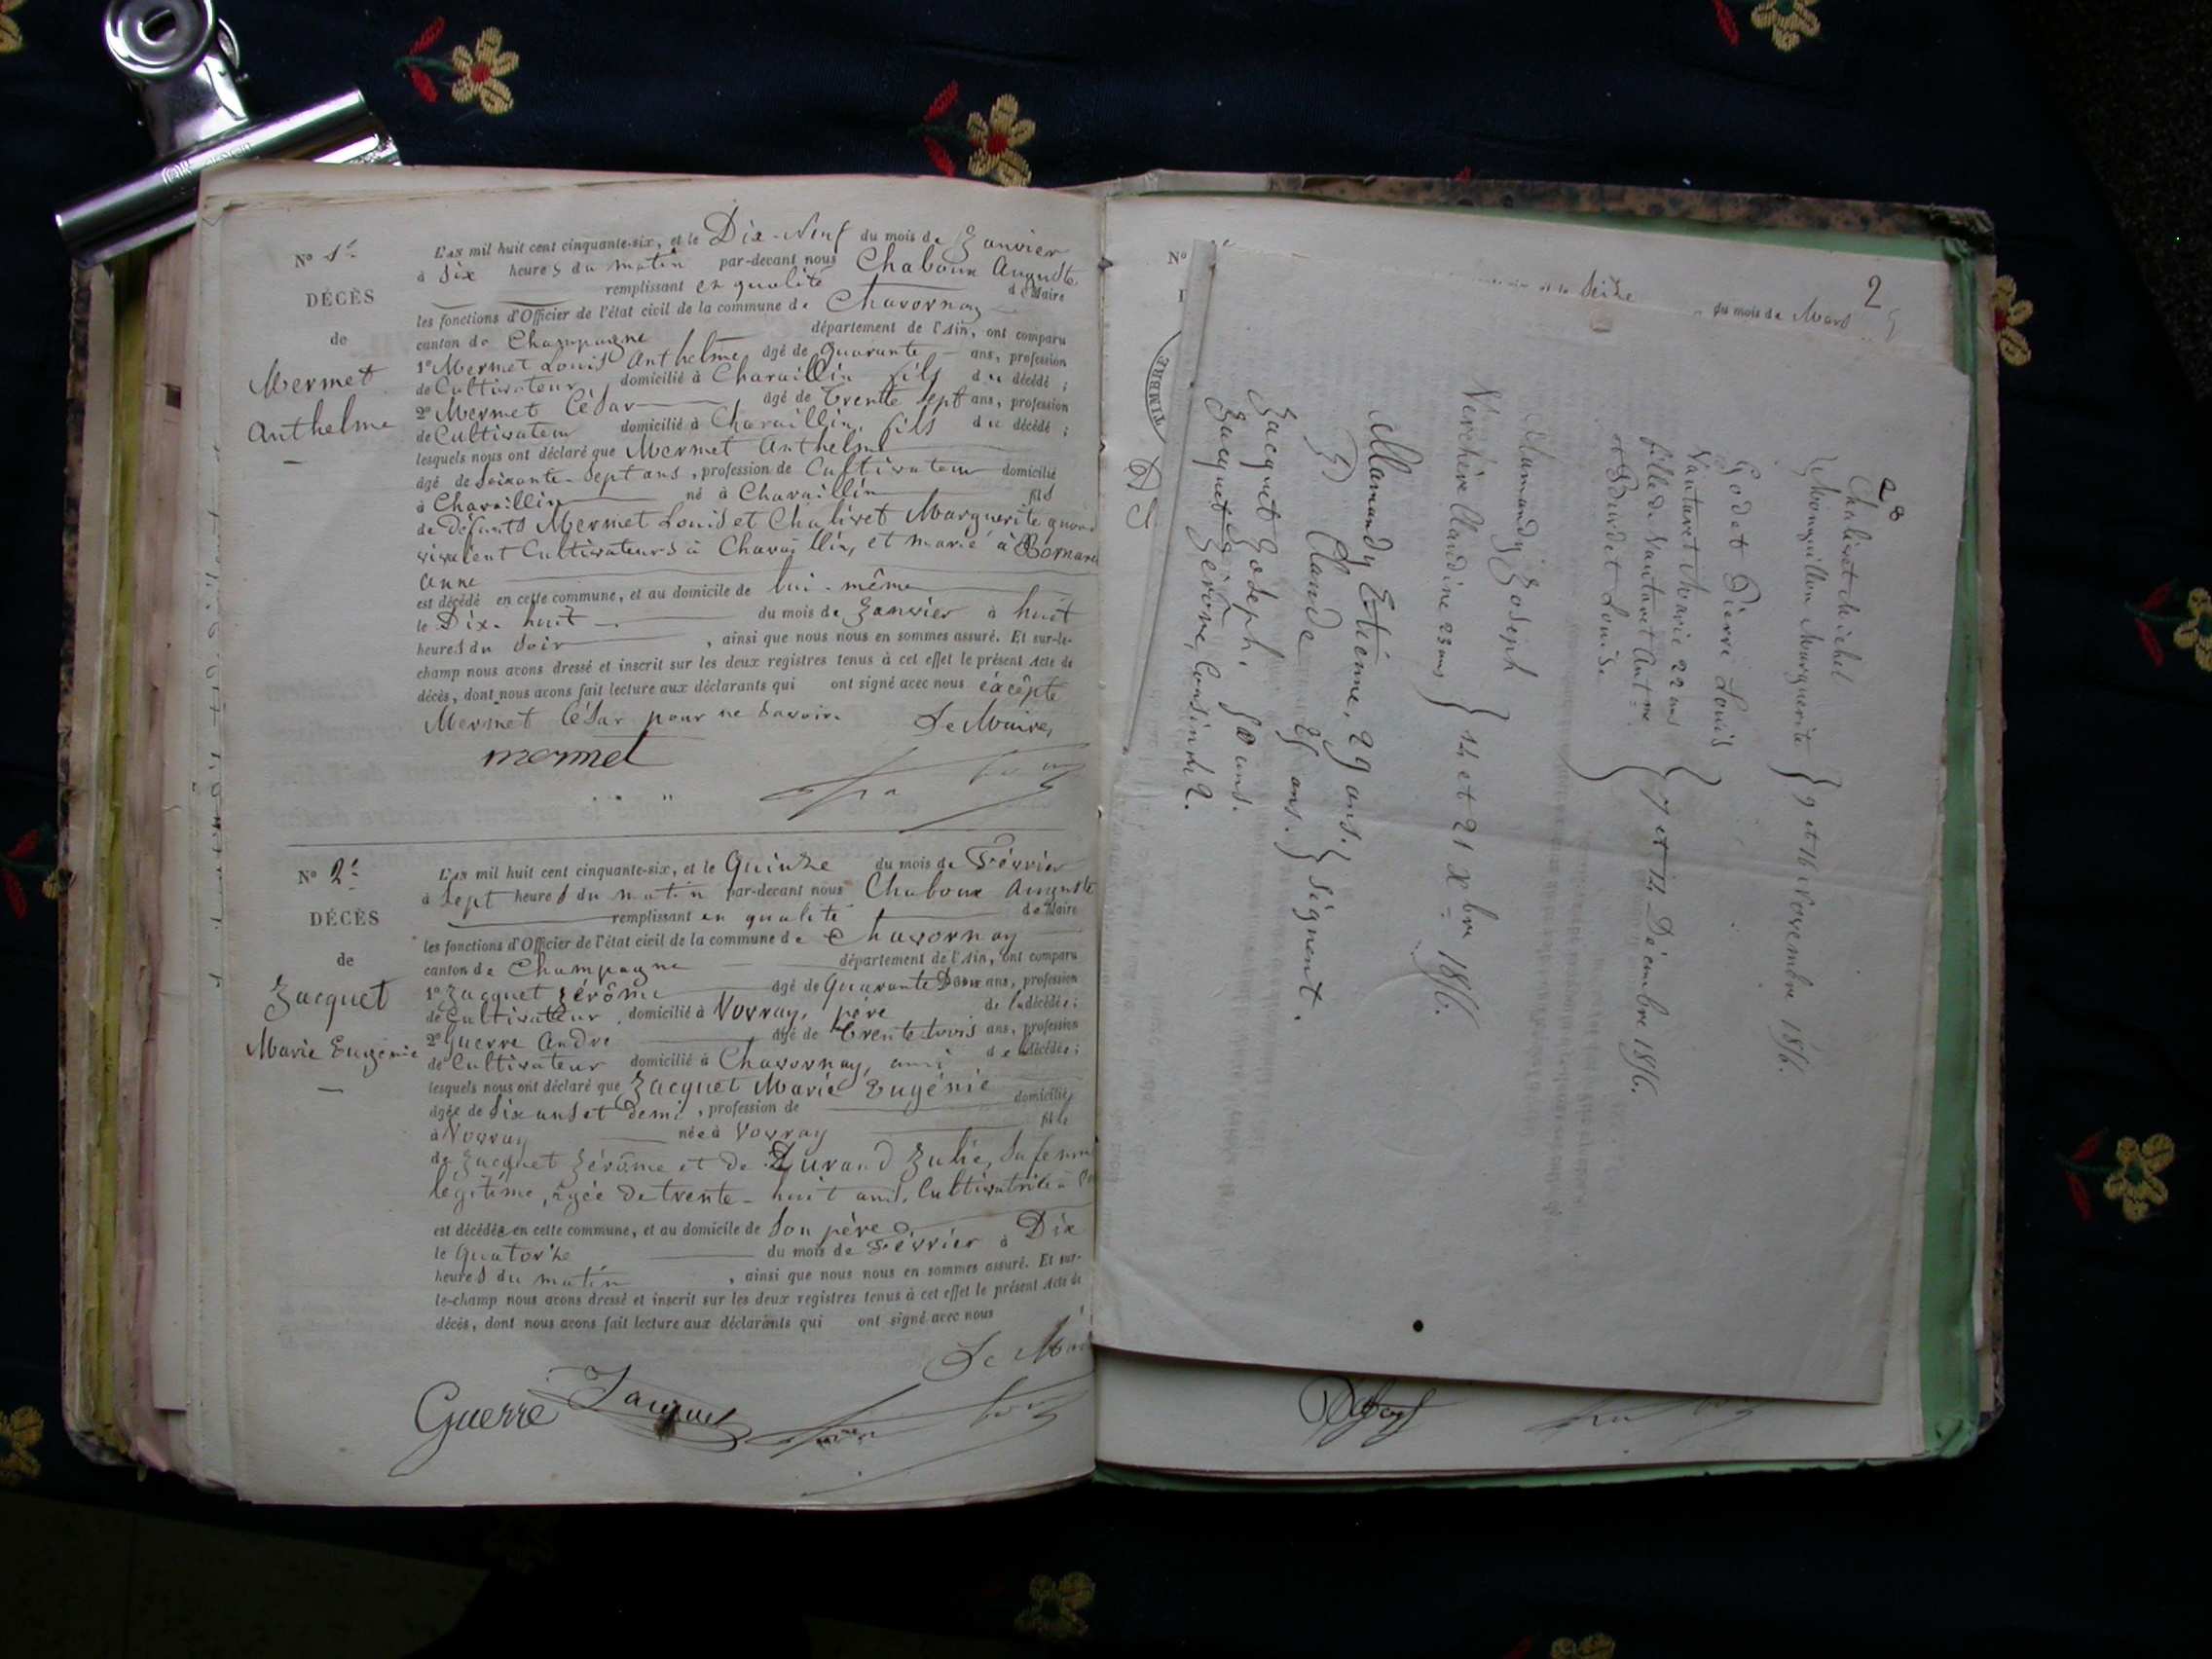 N° 1er
DÉCÈS
de
Mermet
Anthelme
L'an mil huit cent cinquante-six, et le Dix-Neuf du mois de Janvier
à six heures du matin par-devant nous Chaboux Auguste
remplissant en qualité de Maire
les fonctions d'Officier de l'état civil de la commune de Chavornay
canton de Champagne département de l'Ain, ont comparu
1° Mermet Louis Anthelme âgé de quarante ans, profession
de Cultivateur, domicilié à Charaillin fils du décédé ;
2° Mermet César âgé de trente sept ans, profession
de Cultivateur domicilié à Charaillin, fils du décédé ;
lesquels nous ont déclaré que Mermet Anthelme
âgé de soixante-sept ans, profession de Cultivateur domicilié
à Charaillin né à Charaillin fils
de Défunts Mermet Louis et Chalivet Marguerite quand
vivaient Cultivateurs à Charaillin, et marié à Bornard
Anne
est décédé en cette commune, et au domicile de lui-même
le Dix-huit du mois de Janvier à huit
heures du soir, ainsi que nous nous en sommes assuré. Et sur-le-
champ nous avons dressé et inscrit sur les deux registres tenus à cet effet le présent Acte de
décès, dont nous avons fait lecture aux déclarants qui ont signé avec nous excepté
Mermet César pour ne savoir. Le Maire,
mermet
N° 2e
DÉCÈS
de
Jacquet
Marie Eugénie
L'an mil huit cent cinquante-six, et le Quinze du mois de Février
à sept heures du matin par-devant nous Chaboux Auguste
remplissant en qualité de Maire
les fonctions d'Officier de l'état civil de la commune de Chavornay
canton de Champagne département de l'Ain, ont comparu
1° Jacquet Jérôme âgé de Quarante Deux ans, profession
de Cultivateur, domicilié à Vovray, père de la décédée ;
2° Guerre André âgé de trente trois ans, profession
de Cultivateur domicilié à Chavornay, ami de la décédée ;
lesquels nous ont déclaré que Jacquet Marie Eugénie
âgée de six ans et demi, profession de domiciliée
à Vovray née à Vovray fille
de Jacquet Jérôme et de Durand Julie, sa femme
légitime, âgée de trente-huit ans, Cultivatrice à
est décédée en cette commune, et au domicile de son père
le Quatorze du mois de Février à Dix
heures du matin, ainsi que nous nous en sommes assuré. Et sur-
le-champ nous avons dressé et inscrit sur les deux registres tenus à cet effet le présent Acte de
décès, dont nous avons fait lecture aux déclarants qui ont signé avec nous
Le Maire
Guerre Jacquet
N°
TIMBRE
et le seize du mois de Mars
2
Chalivet Michel
et Monguillon Marguerite } 9 et 16 Novembre 1856.
Godet Pierre Louis
Vautaret Marie 22 ans
fille de Vautaret Antme
et Bourdet Louise. } 7 et 14 Décembre 1856.
Mamandy Joseph
Verchère Claudine 23 ans } 14 et 21 xbre 1856.
Mamandy Etienne, 29 ans.
Claude 25 ans. } signent.
Jacquet Joseph, 50 ans.
Jacquet Jérôme, Cousin